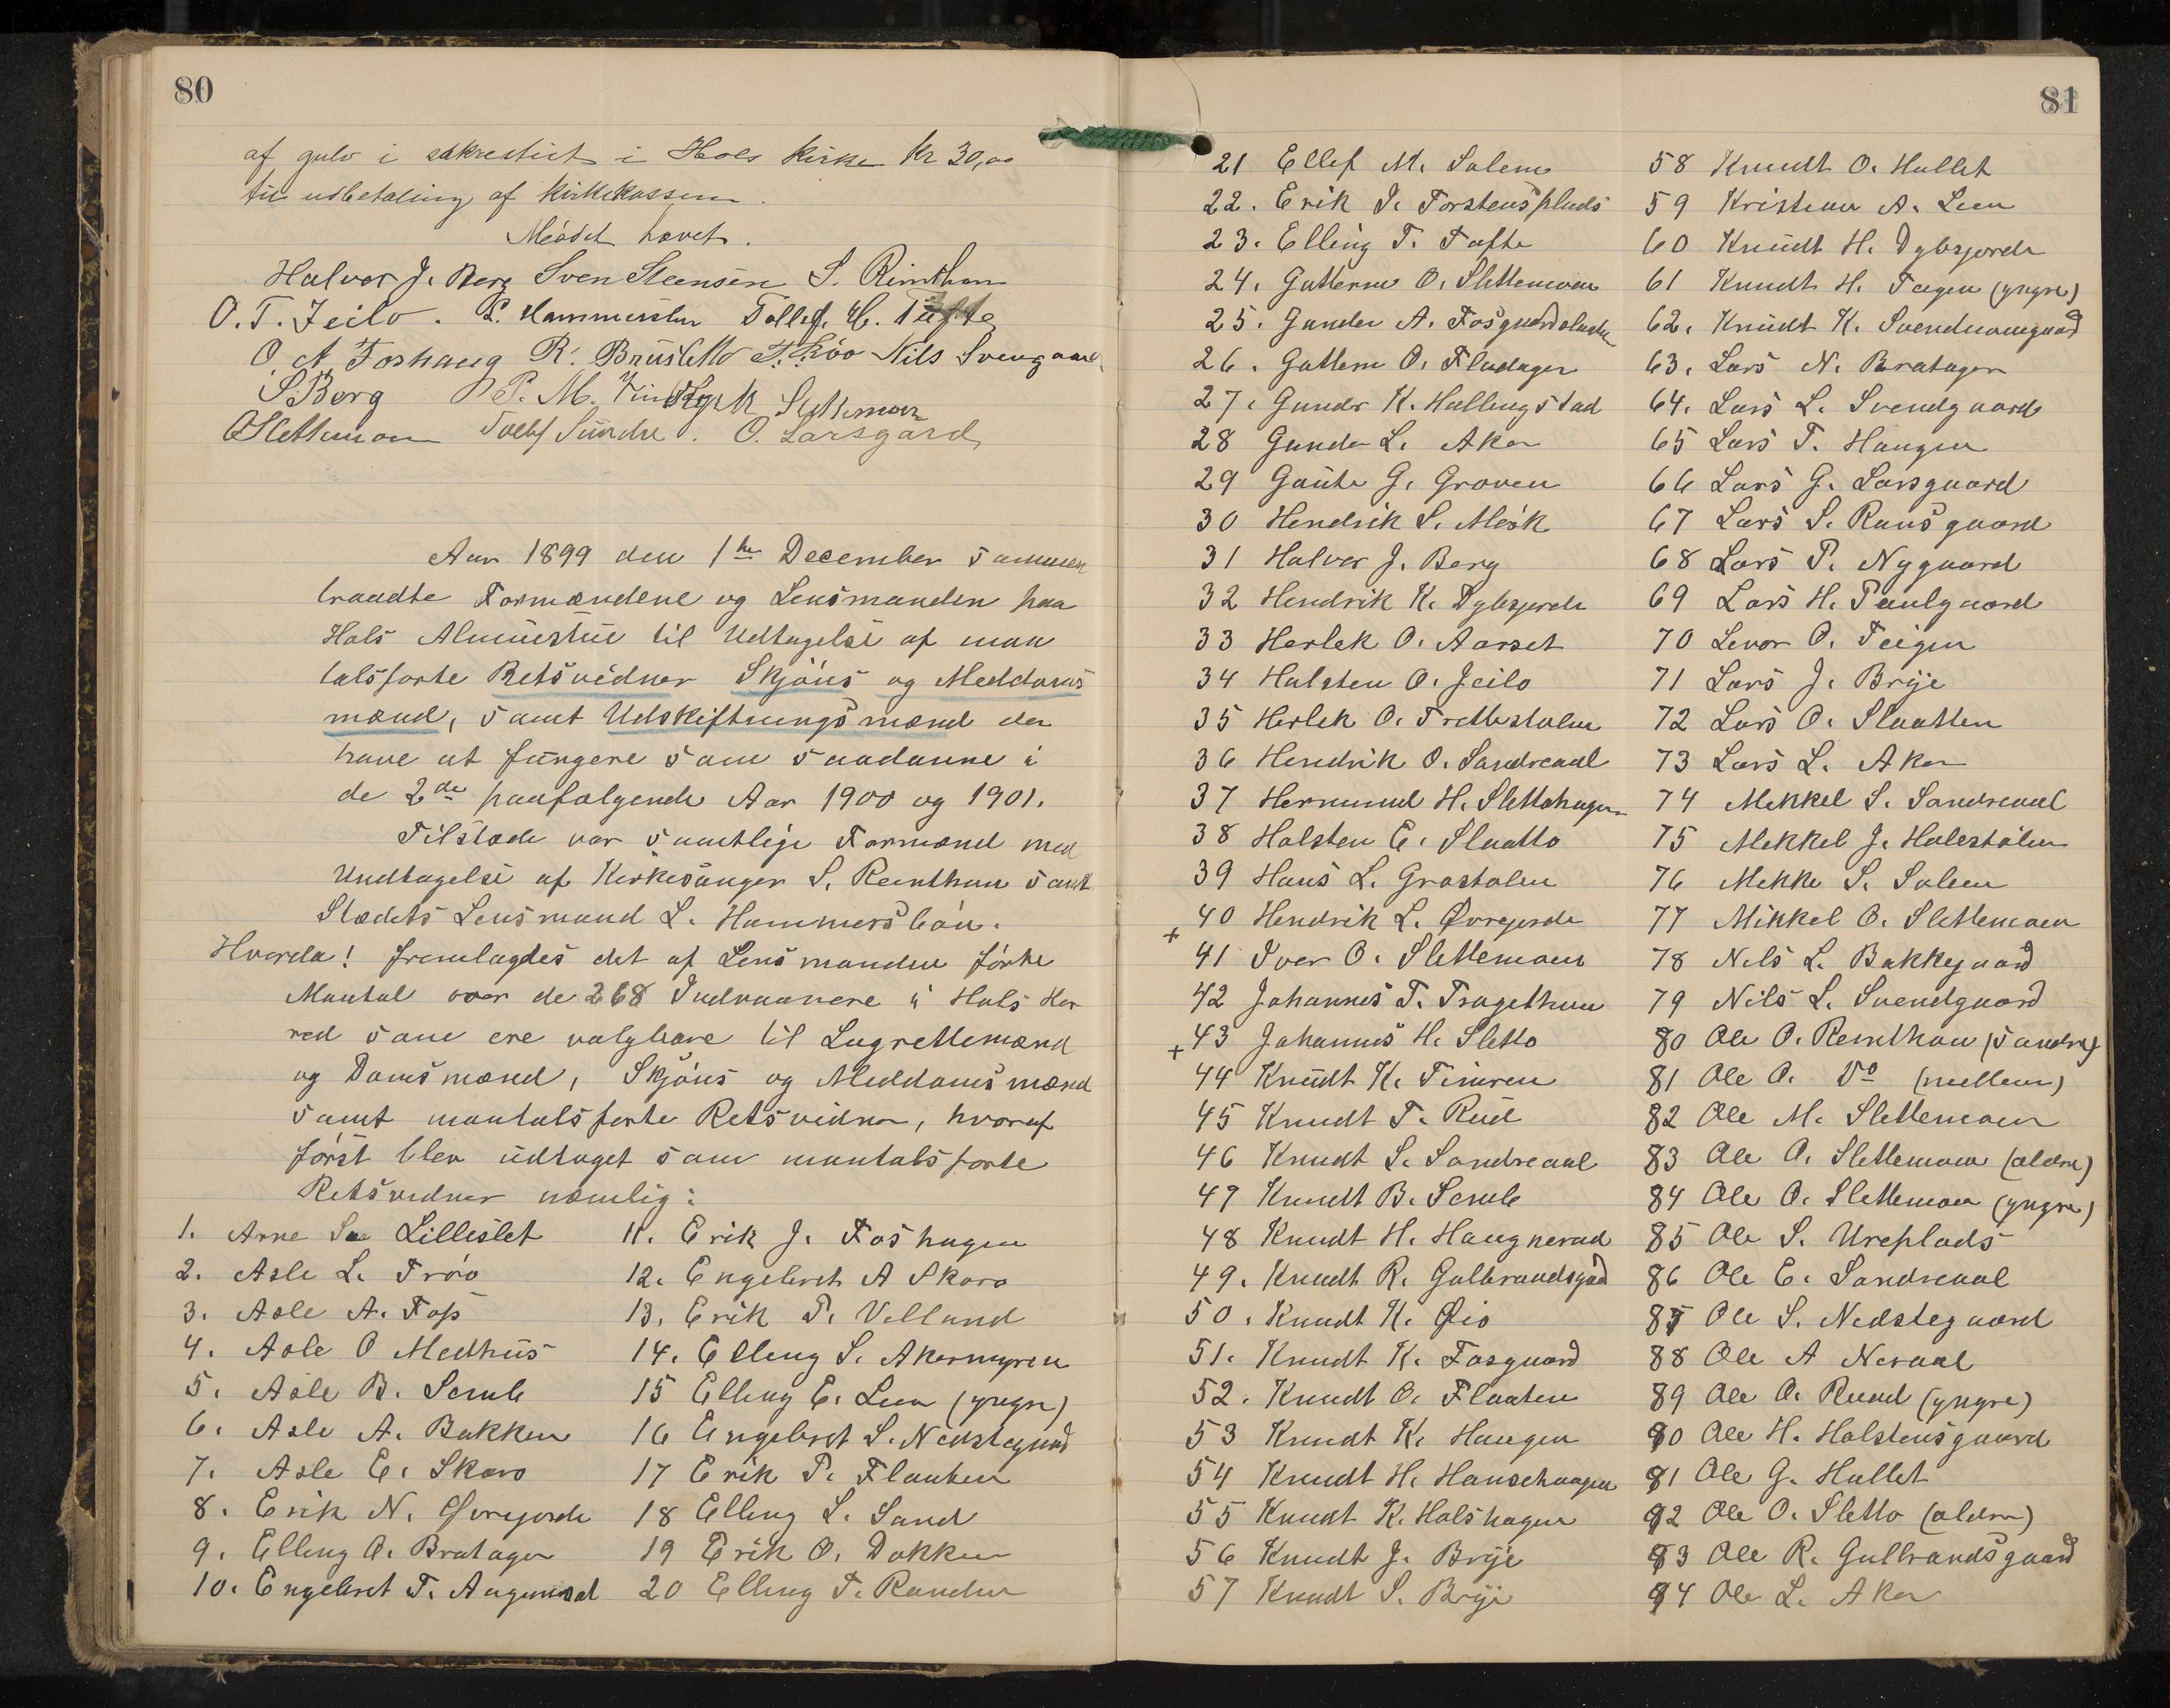 80
af gulv i sakrestiet i Hols kirke Kr 30,00
til udbetaling af kirkekassen.
Mödet hævet.
Halvor J. Berg Sven Steensen S. Reinthon
O. T. Jeilo. L. Hammersbøn Tollef H. Tufte
O. A. Foshaug R. Brusletto T. Röo Nils Svengaard
S. Berg P. M. Slettemoen
O Slettemoen Tollef Sundre. O. Larsgård
Aar 1899 den 1te December sammen
traadte Formændene og Lensmanden paa
Hols Almuestue til Udtagelse af man
talsförte Retsvidner Skjöns og Meddoms
mænd, samt Udskiftningsmænd der
have at fungere som saadanne i
de 2de paafølgende Aar 1900 og 1901.
Tilstede var samtlige Formænd med
Undtagelse af Kirkesanger S. Reinthon samt
Stedets Lensmand L. Hammersbön.
Hvorda! fremlagdes det af Lensmanden förte
Mantal over de 268 Indvaanere i Hols Her
red som ere valgbare til Lagrettemænd
og Domsmænd, Skjöns og Meddomsmænd
samt mantalsførte Retsvidner, hvoraf
först blev udtaget som mantalsførte
Retsvidner nemlig:
1. Arne S. Lilleslet
2. Asle L. Tröo
3. Asle A. Foss
4. Asle O Medhus
5. Asle B. Scrub
6. Asle A. Bakken
7. Asle E. Skaro
8. Erik N. Øvregjorde
9. Elling O. Bratager
10. Engebret T. Augunsad
11. Erik J. Foshagen
12. Engebret A Skaro
13. Erik P. Villand
14. Elling S. Akermyren
15 Elling E. Lien (yngre)
16 Engebret S. Nedstegaard
17 Erik P. Flaaten
18 Elling L. Sand
19 Erik O. Dokken
20 Elling T. Randen
81
21 Ellef M. Solem
22. Erik I. Torstensplads
23. Elling T. Tufte
24. Guttorm O. Slettemoen
25. Gunder A. Fosgaardslaatte
26. Guttorm O. Fladager
27. Gunder K. Hallingstad
28 Gunder L. Aker
29 Gaute G. Groven
30 Hendrik S. Meök
31 Halvor J. Berg
32 Hendrik K. Dybsjorde
33 Herlek O. Aarset
34 Halsten O. Jeilo
35 Herlek O. Trettestølen
36 Hendrik O. Sandreaal
37 Hermund H. Slettehagen
38 Halsten E. Slaatto
39 Hans L. Grøstølen
40 Hendrik L. Øvregjorde
+
41 Iver O. Slettemoen
42 Johannes T. Tragethon
43 Johannes H. Sletto
+
44 Knudt K. Timren
45 Knudt T. Rud
46 Knudt S. Sandreaal
47 Knudt B. Scrub
48 Knudt H. Haugnerud
49. Knudt R. Gulbrandsgård
50. Knudt K. Øio
51. Knudt K. Fosgaard
52. Knudt O. Flaaten
53 Knudt K. Haugen
54 Knudt H. Hansehaugen
55 Knudt K. Holshagen
56 Knudt J. Brýe
57 Knudt S. Brye
58 Knudt O. Hallet
59 Kristian A. Lien
60 Knudt H. Dybsjorde
61 Knudt H. Teigen (yngre)
62. Knudt K. Svendunsgaard
63. Lars N. Bratager
64. Lars L. Svendgaard
65 Lars T. Haugen
66 Lars G. Larsgaard
67 Lars S. Ransgaard
68 Lars P. Nygaard
69 Lars H. Paulgaard
70 Levor O. Teigen
71 Lars J. Brýe
72 Lars O. Slaatten
73 Lars L. Aker
74 Mekkel S. Sandreaal
75 Mekkel J. Holestølen
76 Mekke S. Solem
77 Mikkel O. Slettemoen
78 Nils L. Bakkegaard
79 Nils L. Svendgaard
80 Ole O. Reinthon (søndre)
81 Ole O. Do (mellem)
82 Ole M. Slettemoen
83 Ole O. Slettemoen (ældre)
84 Ole O. Slettemoen (yngre)
85 Ole S. Ureplads
86 Ole E. Sandreaal
87 Ole S. Nedstegaard
88 Ole A Neraal
89 Ole O. Ruud (yngre)
90 Ole H. Holstensgaard
91 Ole G. Hallet
92 Ole O. Sletto (ældre)
93 Ole R. Gulbrandsgaard
94 Ole L. Aker